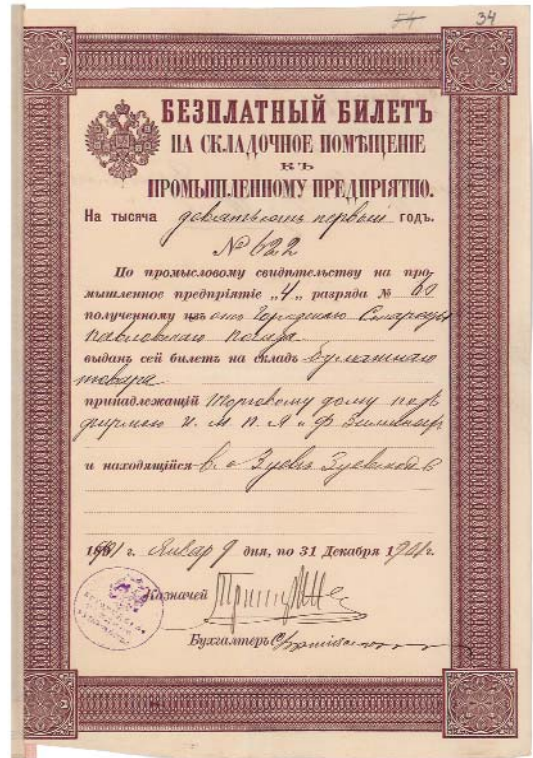 54 34
БЕЗПЛАТНЫЙ БИЛЕТЪ
НА СКЛАДОЧНОЕ ПОМѢЩЕНІЕ
КЪ
ПРОМЫШЛЕННОМУ ПРЕДПРІЯТІЮ.
На тысяча девятьсотъ первый годъ.
№ 622
По промысловому свидѣтельству на про-
мышленное предпріятіе „4„ разряда №
полученному изъ отъ Городского Старосты
Павловскаго Посада
выданъ сей билетъ на складъ бумажнаго
товара
принадлежащій Торговому дому подъ
фирмою И. М. П. А и Ф Зимины
и находящійся в. с Зуевѣ Зуевской в
1901 г. Января 9 дня, по 31 Декабря 1901 г.
Казначей
Бухгалтеръ